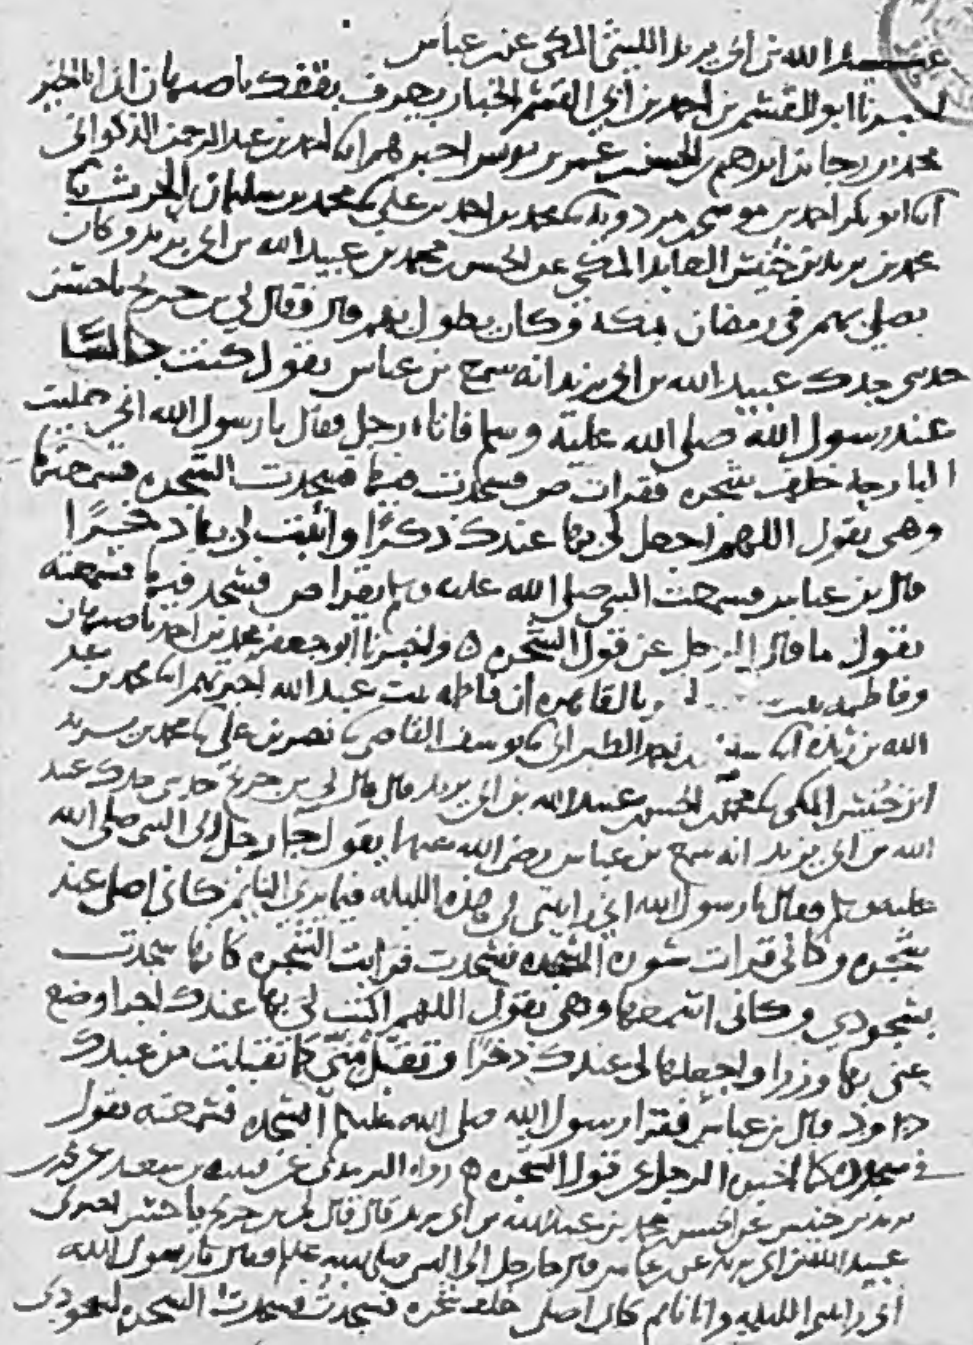 عبيد الله بن أبي يزيد الليثي المكي عن بن عباس
اخبرنا ابو القسم بن احمد بن أبي القسم الخباز يعرف بقفك باصبهان ان ابا الخير
محمد بن رجا بن ابراهيم بن الحسن بن عمر بن يونس اخبرهم ابنا احمد بن عبد الرحمن الذكواني
ابنا ابو بكر احمد بن موسى بن مردويه ثنا محمد بن احمد بن علي ثنا محمد بن سليمان بن الحرث ثنا
محمد بن يزيد بن خنيس العابد المكي عن الحسن بن محمد بن عبيد الله بن ابي يزيد وكان
يصلي بهم في رمضان بمكه وكان يطول بهم قال فقال لي بن جريج يا حسن
حدثني جدك عبيد الله بن ابي يزيد انه سمع بن عباس يقول كنت جالسًا
عند رسول الله صلى الله عليه وسلم فاتاه رجل فقال يا رسول الله اني صليت
البارحه خلف شجره فقرات ص فسجدت فيها فسجدت الشجره فسمعتها
وهي تقول اللهم اجعل لي بها عندك ذكرًا واثبت لي بها ذخرًا
قال بن عباس فسمعت النبي صلى الله عليه وسلم يقرا ص فسجد فيها فسمعته
يقول ما قال الرجل عن قول الشجره ه واخبرنا ابو جعفر محمد بن احمد باصبهان
وفاطمه بنت وبالقاهره ان فاطمه بنت عبد الله اخبرتهم ابنا محمد بن عبد
الله بن ريذه ابنا سليمن بن احمد الطبراني ثنا يوسف القاضي ثنا نصر بن علي ثنا محمد بن يزيد
ابن خنيس المكي ثنا الحسن بن محمد بن عبيد الله بن ابي يزيد قال قال لي بن جريج حدثني جدك عبيد
الله بن ابي يزيد انه سمع بن عباس رضي الله عنهما يقول جا رجل الى النبي صلى الله
عليه وسلم فقال يا رسول الله اني رايتني في هذه الليله فيما يرى النايم كاني اصلي عند
شجره وكاني قرات سورة السجده فسجدت فرايت الشجره كانها سجدت
بسجودي وكاني اسمعها وهي تقول اللهم اكتب لي بها عندك اجرا وضع
عني بها وزرا واجعلها لي عندك ذخرًا وتقبل مني كما تقبلت من عبدك
داود قال بن عباس فقرا رسول الله صلى الله عليه وسلم السجده فسمعته يقول
في سجوده كما اخبره الرجل عن قول الشجره ه رواه الترمذي عن قتيبه بن سعيد عن محمد بن
يزيد بن خنيس عن الحسن بن محمد بن عبيد الله بن ابي يزيد قال قال لي بن جريج يا حسن اخبرني
عبيد الله بن ابي يزيد عن بن عباس قال جا رجل الى النبي صلى الله عليه وسلم فقال يا رسول الله
اني رايتني الليله وانا نايم كاني اصلي خلف شجره فسجدت فسجدت الشجره لسجودي